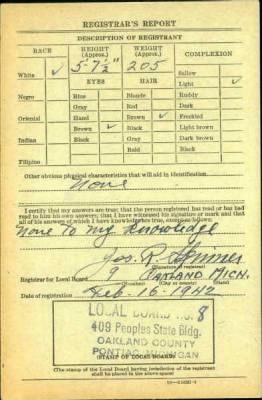 REGISTRAR'S REPORT
DESCRIPTION OF REGISTRANT
RACE HEIGHT (Approx.) WEIGHT (Approx.) COMPLEXION
5-7½" 205
White ✓ Sallow
EYES HAIR Light ✓
Negro Blue Blonde Ruddy
Gray Red Dark
Oriental Hazel Brown ✓ Freckled
Brown ✓ Black Light brown
Indian Black Gray Dark brown
Bald Black
Filipino
Other obvious physical characteristics that will aid in identification
None
I certify that my answers are true; that the person registered has read or has had
read to him his own answers; that I have witnessed his signature or mark and that
all of his answers of which I have knowledge are true, except as follows:
None To my Knowledge
Jos. R.
(Signature of registrar)
Registrar for Local Board 9 OAKLAND MICH.
(Number) (City or county) (State)
Date of registration Feb-16-1942
LOCAL BOARD NO. 8
409 Peoples State Bldg.
OAKLAND COUNTY
PONTIAC, MICHIGAN
(STAMP OF LOCAL BOARD)
(The stamp of the Local Board having jurisdiction of the registrant
shall be placed in the above space)